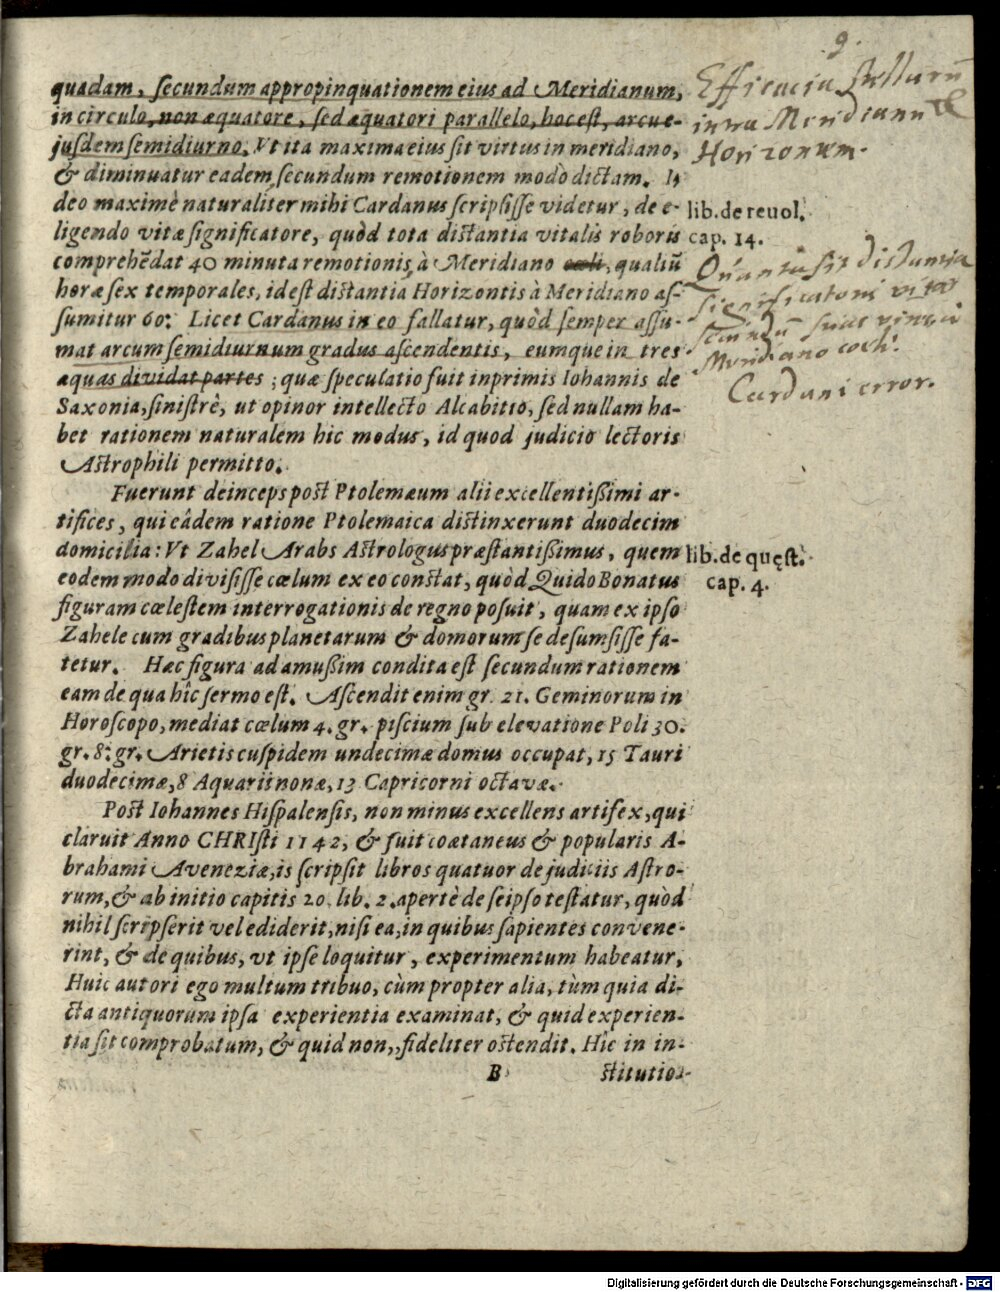 9.
quadam, ſecundum appropinquationem eius ad Meridianum,
in circulo, non æquatore, ſed æquatori parallelo, hoc eſt, arcu e-
juſdem ſemidiurno. Vt ita maxima eius ſit virtus in meridiano,
& diminuatur eadem ſecundum remotionem modò dictam. I-
deo maximè naturaliter mihi Cardanus ſcripſiſſe videtur, de e-
ligendo vitæ ſignificatore, quòd tota diſtantia vitalis roboris
comprehẽdat 40 minuta remotionis à Meridiano cœli, qualiũ
horæ ſex temporales, id eſt diſtantia Horizontis à Meridiano aſ-
ſumitur 60: Licet Cardanus in eo fallatur, quòd ſemper aſſu-
mat arcum ſemidiurnum gradus aſcendentis, eumque in tres
æquas dividat partes; quæ ſpeculatio fuit inprimis Iohannis de
Saxonia, ſiniſtrè, ut opinor intellecto Alcabitio, ſed nullam ha-
bet rationem naturalem hic modus, id quod judicio lectoris
Aſtrophili permitto.
Fuerunt deinceps poſt Ptolemæum alii excellentißimi ar-
tifices, qui eâdem ratione Ptolemaica diſtinxerunt duodecim
domicilia: Vt Zahel Arabs Aſtrologus præſtantißimus, quem
eodem modo diviſiſſe cœlum ex eo conſtat, quòd Quido Bonatus
figuram cœleſtem interrogationis de regno poſuit, quam ex ipſo
Zahele cum gradibus planetarum & domorum ſe deſumſiſſe fa-
tetur. Hæc figura ad amußim condita eſt ſecundum rationem
eam de qua hîc ſermo eſt. Aſcendit enim gr. 21. Geminorum in
Horoſcopo, mediat cœlum 4. gr. piſcium ſub elevatione Poli 30.
gr. 8. gr. Arietis cuſpidem undecimæ domus occupat, 15 Tauri
duodecimæ, 8 Aquarii nonæ, 13 Capricorni octavæ.
Poſt Iohannes Hiſpalenſis, non minus excellens artifex, qui
claruit Anno CHRIſti 1142, & fuit coætaneus & popularis A-
brahami Aveneziæ, is ſcripſit libros quatuor de judiciis Aſtro-
rum, & ab initio capitis 20. lib. 2. apertè de ſeipſo teſtatur, quòd
nihil ſcripſerit vel ediderit, niſi ea, in quibus ſapientes convene-
rint, & de quibus, vt ipſe loquitur, experimentum habeatur,
Huic autori ego multum tribuo, cùm propter alia, tùm quia di-
cta antiquorum ipſa experientia examinat, & quid experien-
tia ſit comprobatum, & quid non, fideliter oſtendit. Hîc in in-
B ſtitutio-
Efficacia ſtellarũ
Meridianũ &
Horizontem.
lib. de revol.
cap. 14.
Quanta ſit diſtantia
ſignificatoris vitæ
Meridiano cœli.
Cardani error.
lib. de quęſt.
cap. 4.
Digitalisierung gefördert durch die Deutsche Forschungsgemeinschaft - DFG